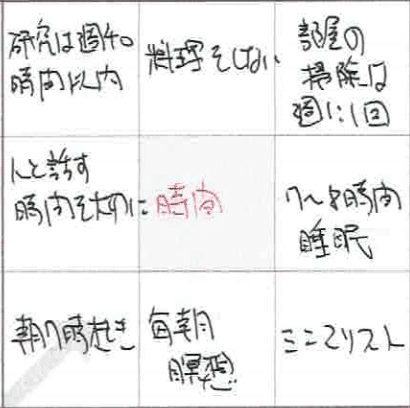 研究は週40
時間以内
料理をしない
部屋の
掃除は
週に1回
人と話す
時間を大切に
時間
7〜8時間
睡眠
朝7時起き
毎朝
瞑想
ミニマリスト